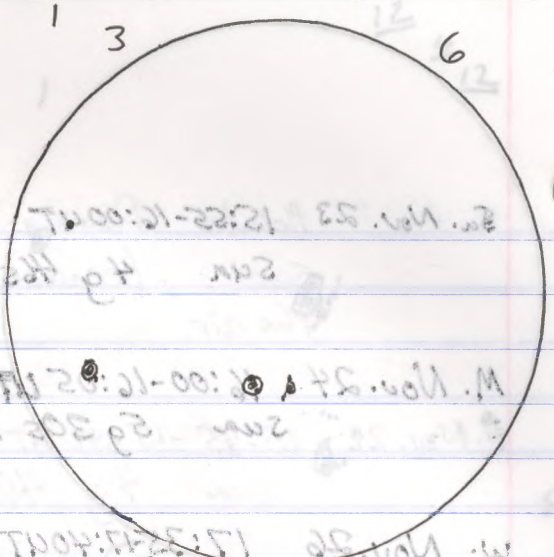 1 3 6
Su. Nov. 23 15:55-16:00UT
Sun 4g 46s
M. Nov. 24 16:00-16:05UT
Sun 5g 30s
W. Nov. 26 17:35-17:40UT